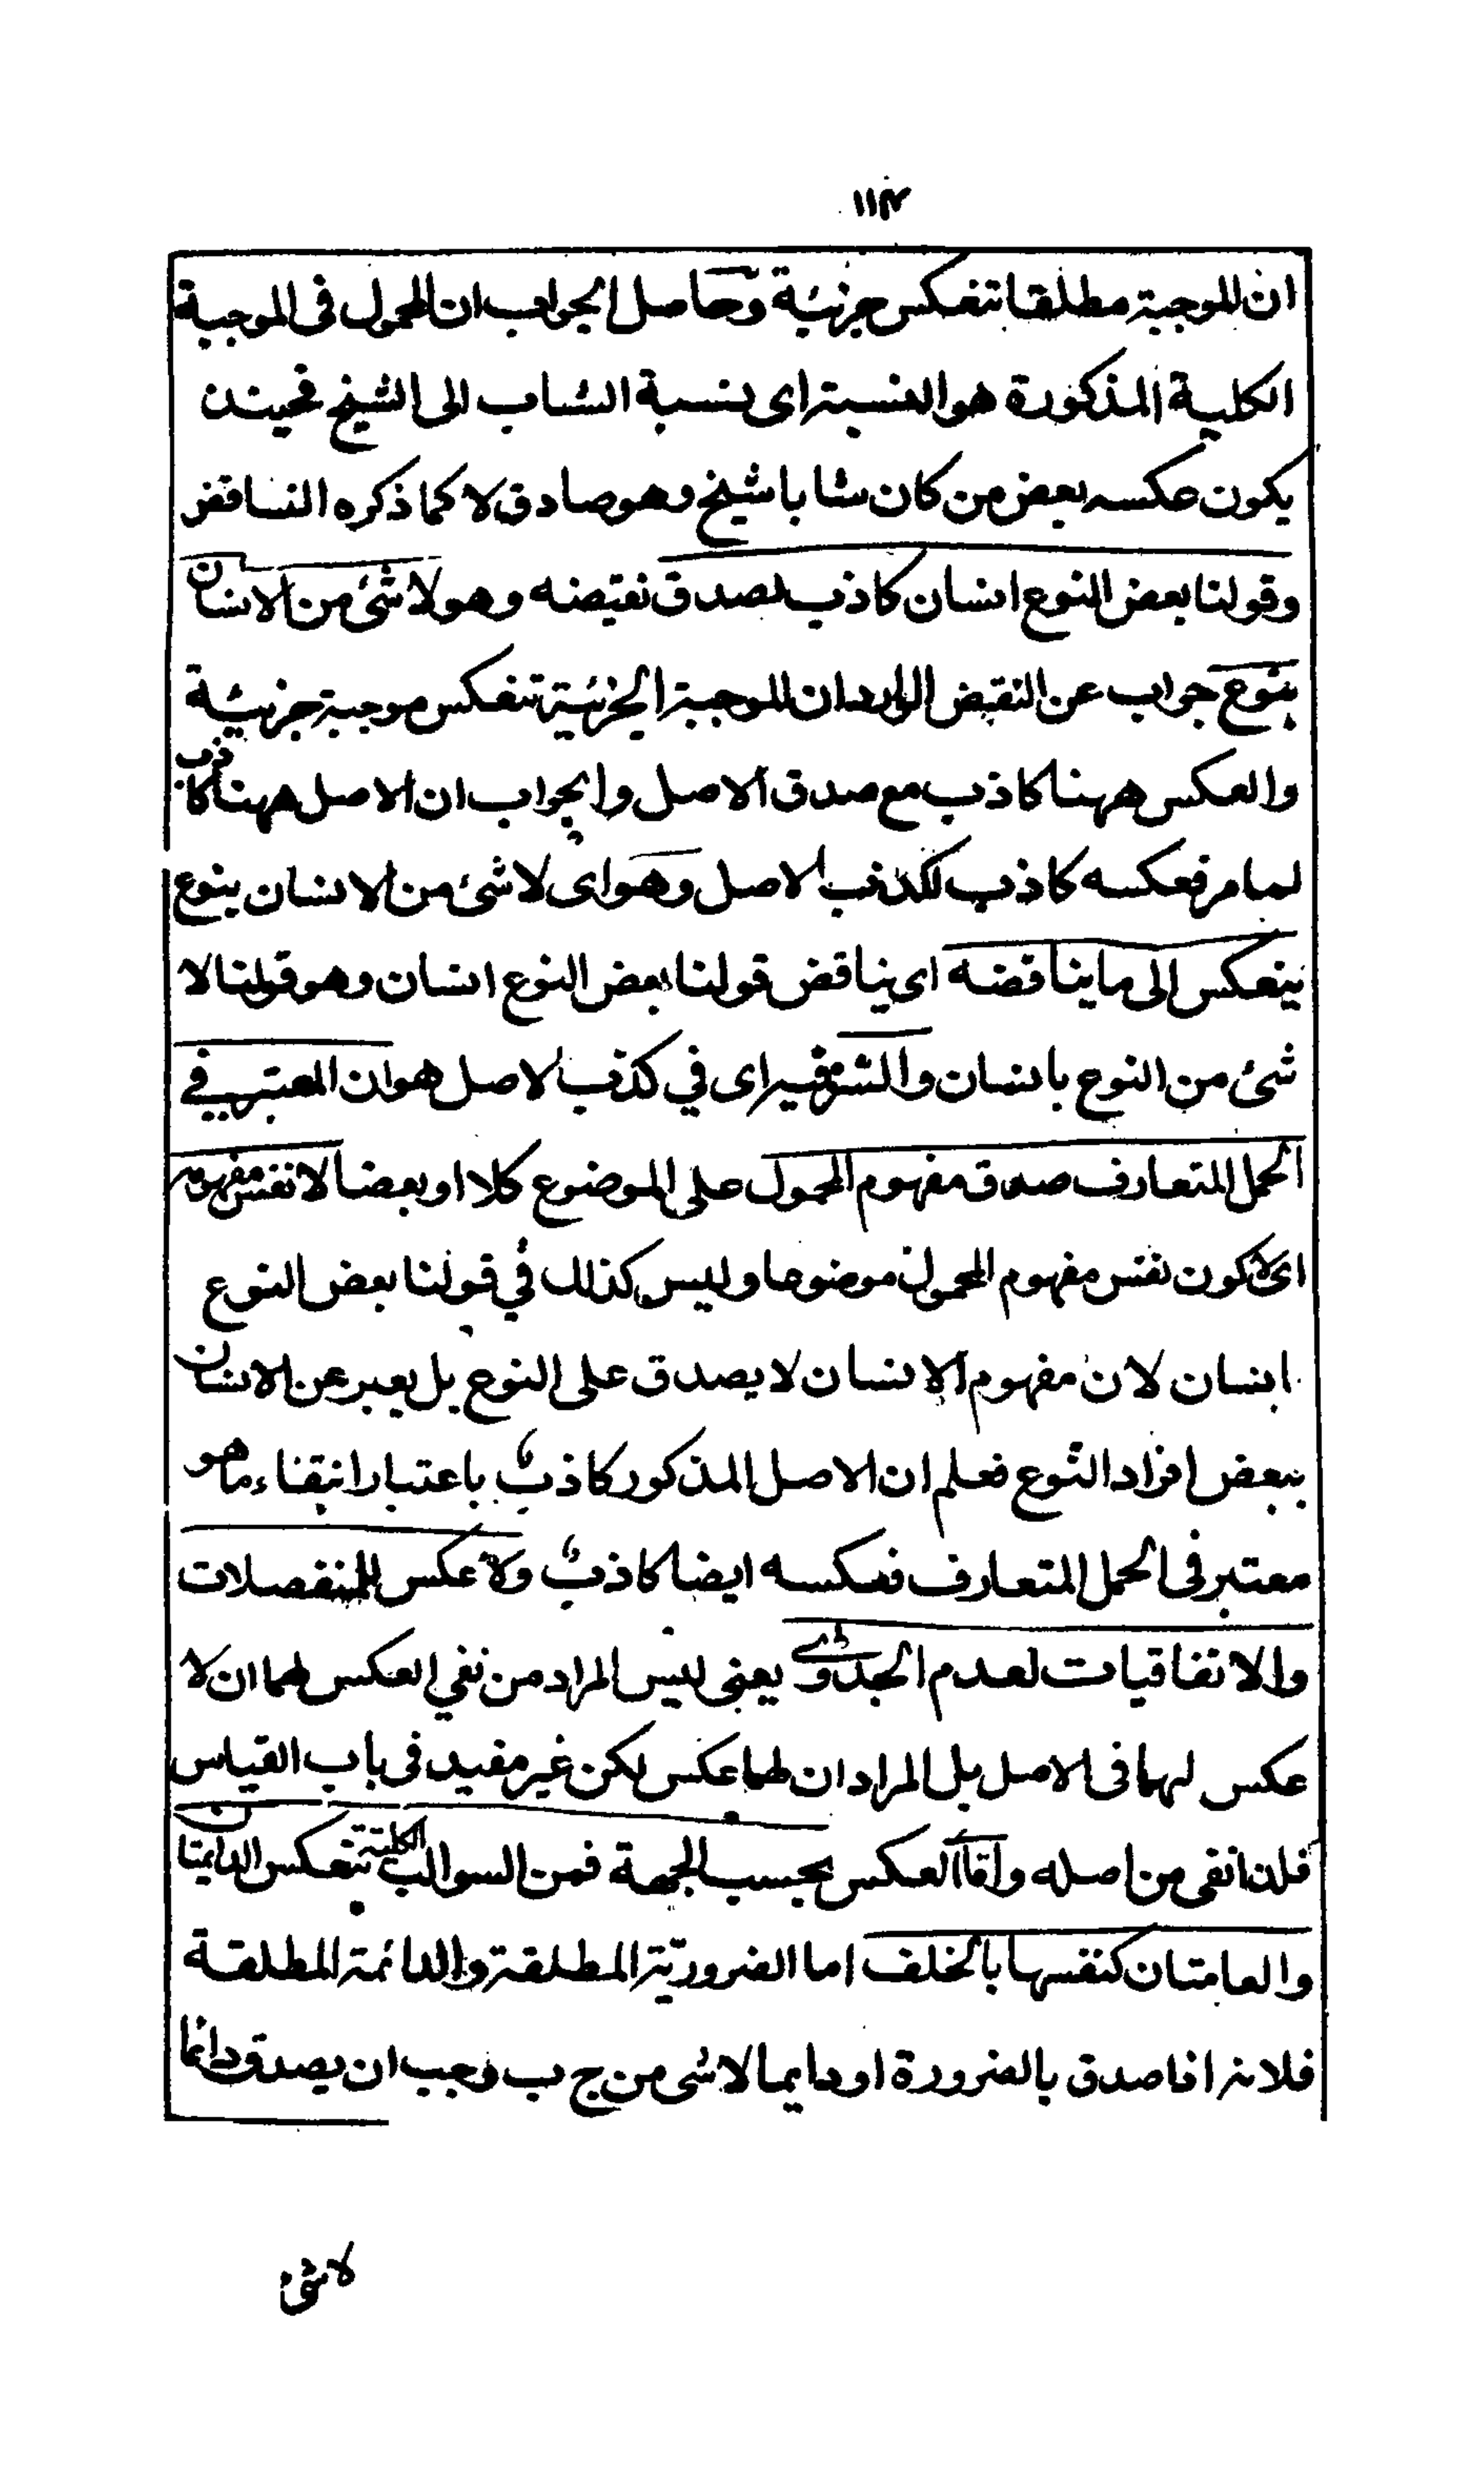 ١١٤
ان الموجبة مطلقا تنعكس جزئية وحاصل الجواب ان المحمول فى الموجبة
الكلية المذكورة هو النسبة اى نسبة الشاب الى الشيخ فحينئذ
يكون عكسه بعض من كان شابا شيخ وهو صادق لا كما ذكره الناقض
وقولنا بعض النوع انسان كاذب لصدق نقيضه وهو لا شئ من الانسان
بنوع جواب عن النقيض الوارد ان الموجبة الجزئية تنعكس موجبة جزئية
والعكس ههنا كاذب مع صدق الاصل والجواب ان الاصل ههنا كاذب
لما مر فعكسه كاذب لكذب الاصل وهو اى لا شئ من الانسان بنوع
ينعكس الى ما يناقضه اى يناقض قولنا بعض النوع انسان وهو قولنا لا
شئ من النوع بانسان والسر فيه اى في كذب الاصل هو ان المعتبر في
الحمل المتعارف صدق مفهوم المحمول على الموضوع كلا او بعضا لا نفس مفهومه
اى لا كون نفس مفهوم المحمول موضوعا وليس كذلك في قولنا بعض النوع
انسان لان مفهوم الانسان لا يصدق على النوع بل يعبر عن الانسان
ببعض افراد النوع فعلم ان الاصل المذكور كاذب باعتبار انتفاء ما هو
معتبر فى الحمل المتعارف فعكسه ايضا كاذب ولا عكس للمنفصلات
والاتفاقيات لعدم الجدوى يعنى ليس المراد من نفي العكس لهما ان لا
عكس لهما فى الاصل بل المراد ان لهما عكس لكن غير مفيد فى باب القياس
فلذا نفى من اصله واما العكس بحسب الجهة فمن السوالب الكلية تنعكس الدايمتان
والعامتان كنفسها بالخلف اما الضرورية المطلقة والدائمة المطلقة
فلانه اذا صدق بالضرورة او دايما لا شى من ج ب وجب ان يصدق دائما
لا شئ